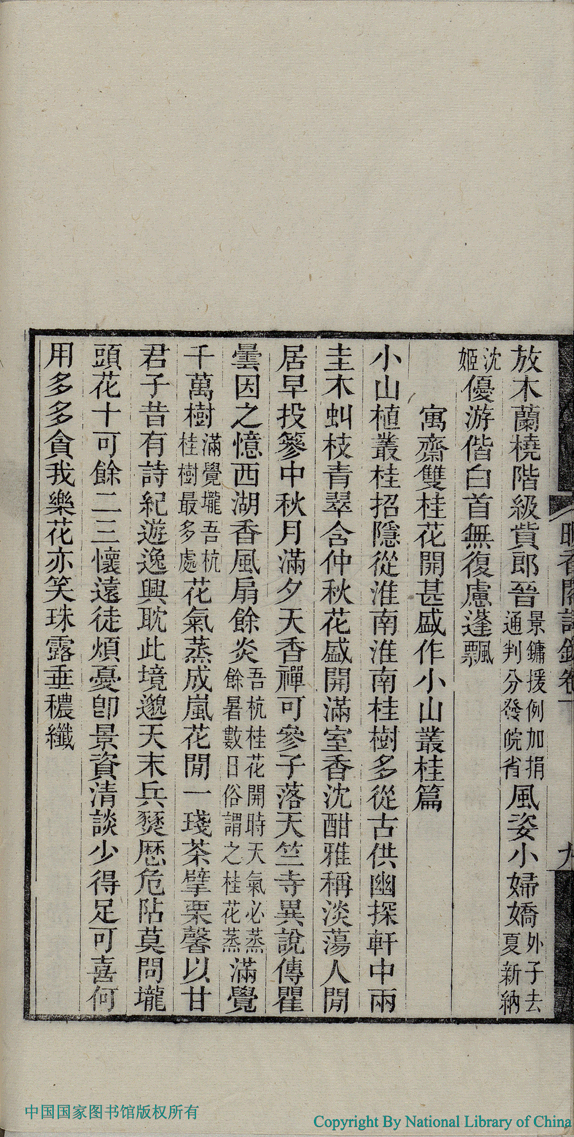 晚香閣詩鈔卷一
九
放木蘭橈階級貲郎晉景鏞援例加捐通判分發皖省風姿小婦嬌外子去夏新納
沈姬優游偕白首無復慮蓬飄
寓齋雙桂花開甚盛作小山叢桂篇
小山植叢桂招隱從淮南淮南桂樹多從古供幽探軒中兩
圭木虬枝青翠含仲秋花盛開滿室香沈酣雅稱淡蕩人閒
居早投簪中秋月滿夕天香禪可參子落天竺寺異說傳瞿
曇因之憶西湖香風扇餘炎吾杭桂花開時天氣必蒸餘暑數日俗謂之桂花蒸滿覺
千萬樹滿覺壠吾杭桂樹最多處花氣蒸成嵐花閒一琖茶擘栗馨以甘
君子昔有詩紀遊逸興耽此境邈天末兵燹厯危阽莫問壠
頭花十可餘二三懷遠徒煩憂卽景資清談少得足可喜何
用多多貪我樂花亦笑珠露垂穠纖
中国国家图书馆版权所有
Copyright By National Library of China